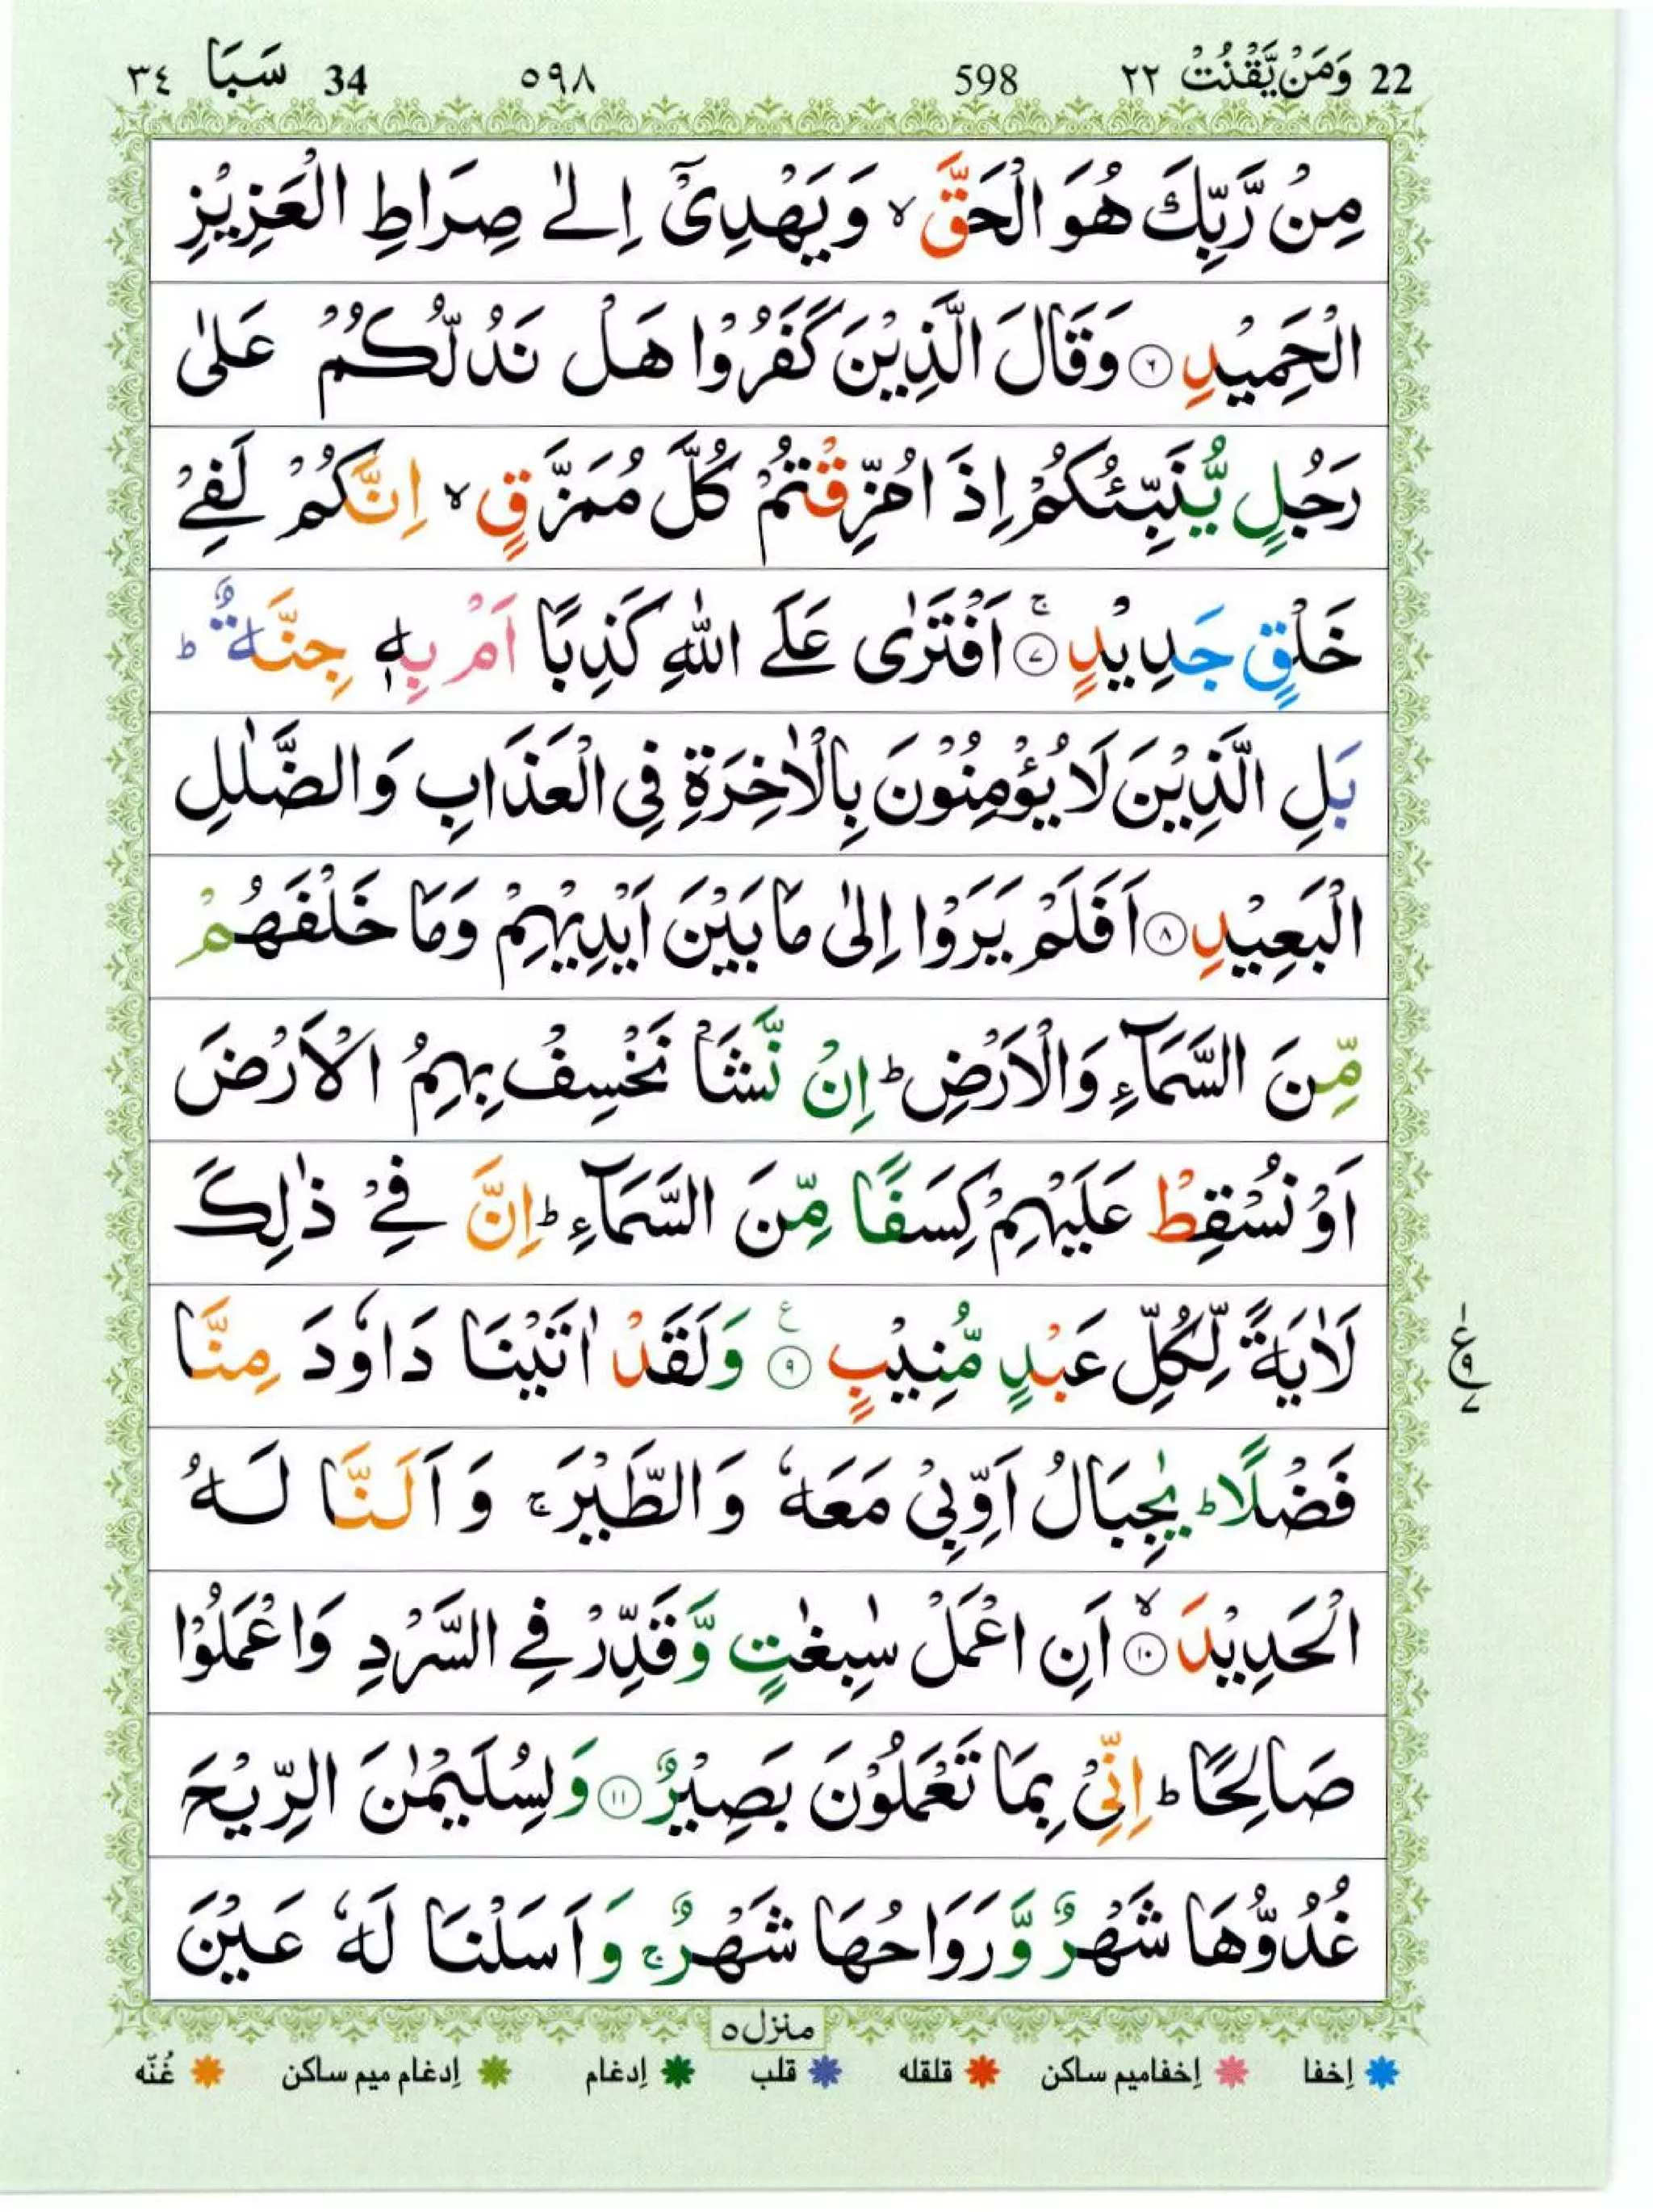 22 وَمَنْ يَّقْنُتْ ٢٢ 598 ٥٩٨ 34 سَبَا ٣٤
مِنْ رَّبِّكَ هُوَ الْحَقَّ ۙ وَيَهْدِيْٓ اِلٰى صِرَاطِ الْعَزِيْزِ
الْحَمِيْدِ ۶ وَقَالَ الَّذِيْنَ كَفَرُوْا هَلْ نَدُلُّكُمْ عَلٰى
رَجُلٍ يُّنَبِّئُكُمْ اِذَا مُزِّقْتُمْ كُلَّ مُمَزَّقٍ ۙ اِنَّكُمْ لَفِيْ
خَلْقٍ جَدِيْدٍ ۚ ۷ اَفْتَرٰى عَلَى اللّٰهِ كَذِبًا اَمْ بِهٖ جِنَّةٌ ؕ
بَلِ الَّذِيْنَ لَا يُؤْمِنُوْنَ بِالْاٰخِرَةِ فِي الْعَذَابِ وَالضَّلٰلِ
الْبَعِيْدِ ۸ اَفَلَمْ يَرَوْا اِلٰى مَا بَيْنَ اَيْدِيْهِمْ وَمَا خَلْفَهُمْ
مِّنَ السَّمَآءِ وَالْاَرْضِ ؕ اِنْ نَّشَاْ نَخْسِفْ بِهِمُ الْاَرْضَ
اَوْ نُسْقِطْ عَلَيْهِمْ كِسَفًا مِّنَ السَّمَآءِ ؕ اِنَّ فِيْ ذٰلِكَ
لَاٰيَةً لِّكُلِّ عَبْدٍ مُّنِيْبٍ ۹ ع وَلَقَدْ اٰتَيْنَا دَاوٗدَ مِنَّا
ع ۹ ۷
فَضْلًا ؕ يٰجِبَالُ اَوِّبِيْ مَعَهٗ وَالطَّيْرَ ۚ وَاَلَنَّا لَهُ
الْحَدِيْدَ ۙ ۱۰ اَنِ اعْمَلْ سٰبِغٰتٍ وَّقَدِّرْ فِي السَّرْدِ وَاعْمَلُوْا
صَالِحًا ؕ اِنِّيْ بِمَا تَعْمَلُوْنَ بَصِيْرٌ ۱۱ وَلِسُلَيْمٰنَ الرِّيْحَ
غُدُوُّهَا شَهْرٌ وَّرَوَاحُهَا شَهْرٌ ۚ وَاَسَلْنَا لَهٗ عَيْنَ
منزل ٥
اِخفا اِخفامیم ساکن قلقله قلب اِدغام اِدغام میم ساکن غُنّه